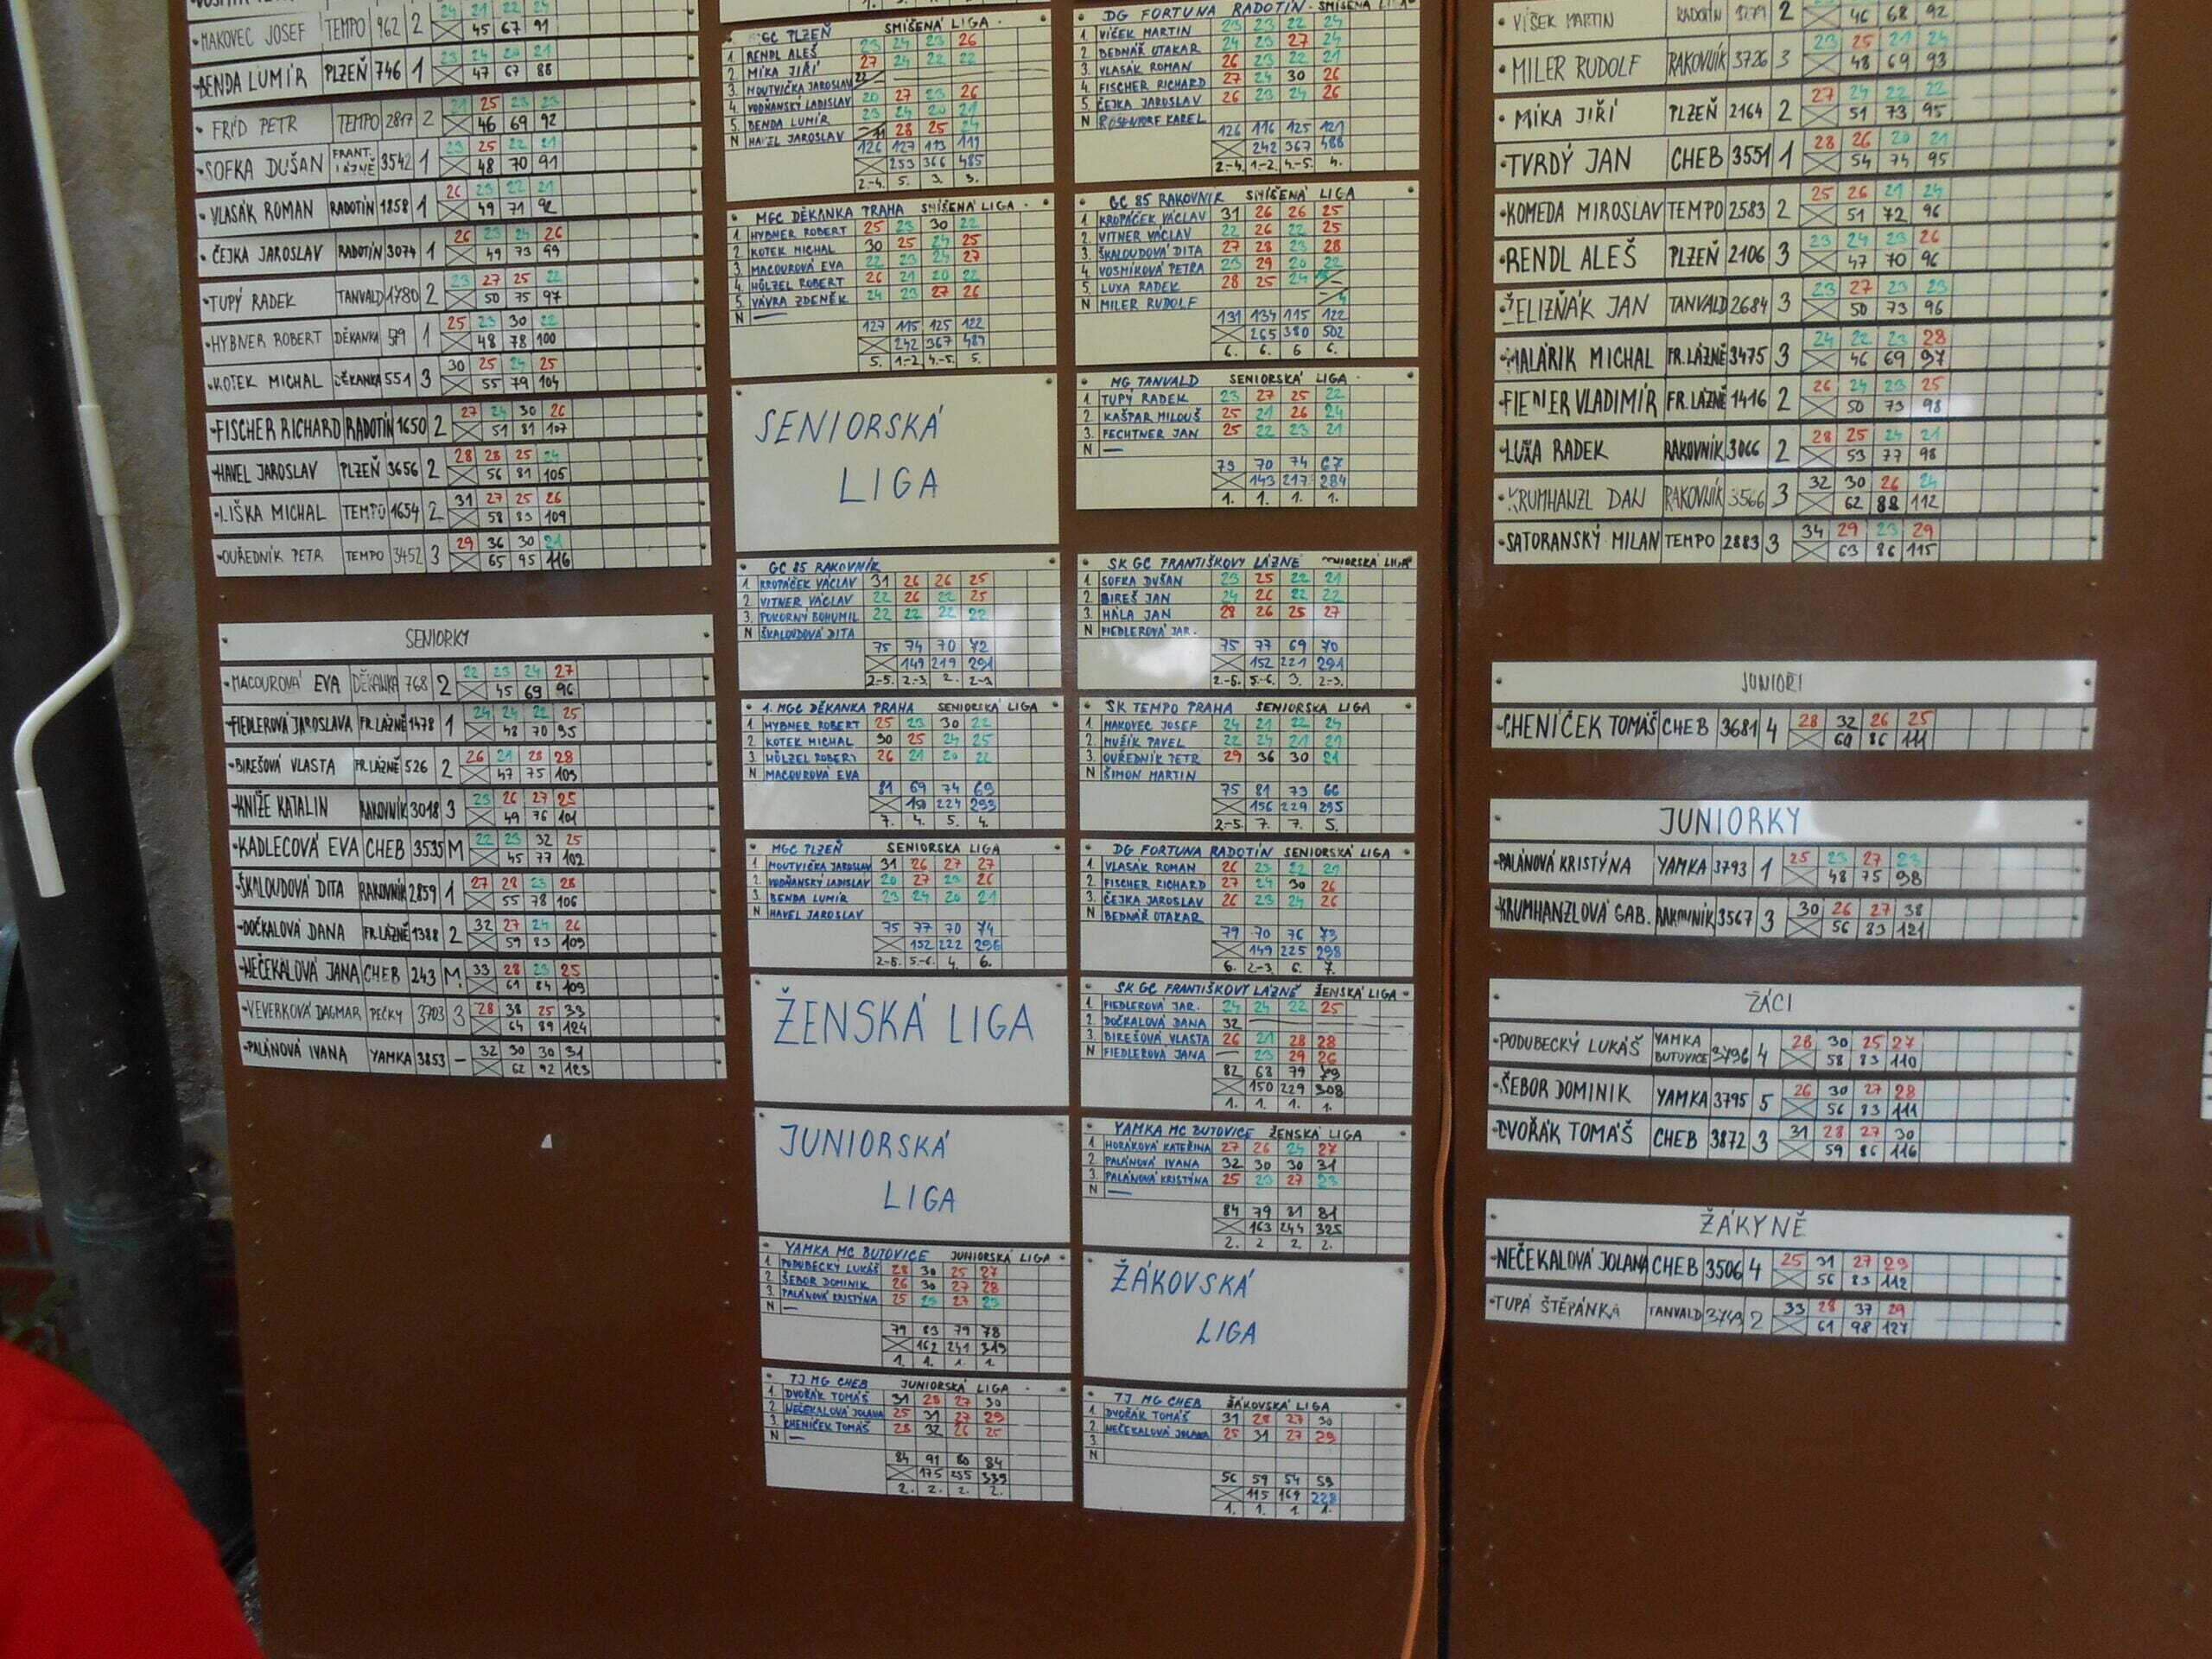 MAKOVEC JOSEF TEMPO 962 2 24 21 22 24
45 67 91
BENDA LUMÍR PLZEŇ 746 1 23 24 20 21
47 67 88
FRÍD PETR TEMPO 2817 2 21 25 23 23
46 69 92
SOFKA DUŠAN FRANT. LÁZNĚ 3542 1 23 25 22 21
48 70 91
VLASÁK ROMAN RADOTÍN 1858 1 26 23 22 21
49 71 92
ČEJKA JAROSLAV RADOTÍN 3074 1 26 23 24 26
49 73 99
TUPÝ RADEK TANVALD 1780 2 23 27 25 22
50 75 97
HYBNER ROBERT DĚKANKA 579 1 25 23 30 22
48 78 100
KOTEK MICHAL DĚKANKA 551 3 30 25 24 25
55 79 104
FISCHER RICHARD RADOTÍN 1650 2 27 24 30 26
51 81 107
HAVEL JAROSLAV PLZEŇ 3656 2 28 28 25 24
56 81 105
LIŠKA MICHAL TEMPO 1654 2 31 27 25 26
58 83 109
OUŘEDNÍK PETR TEMPO 3452 3 29 36 30 21
65 95 116
SENIORKY
MACOUROVÁ EVA DĚKANKA 768 2 22 23 24 27
45 69 96
FIEDLEROVÁ JAROSLAVA FR. LÁZNĚ 1478 1 24 24 22 25
48 70 95
BIREŠOVÁ VLASTA FR. LÁZNĚ 526 2 26 21 28 28
47 75 103
KNÍŽE KATALIN RAKOVNÍK 3018 3 23 26 27 25
49 76 101
KADLECOVÁ EVA CHEB 3535 M 22 23 32 25
45 77 102
ŠKALOUDOVÁ DITA RAKOVNÍK 2859 1 27 28 23 28
55 78 106
DOČKALOVÁ DANA FR. LÁZNĚ 1388 2 32 27 24 26
59 83 109
NEČEKALOVÁ JANA CHEB 243 M 33 28 23 25
61 84 109
VEVERKOVÁ DAGMAR PEČKY 3703 3 28 38 25 33
64 89 124
PALÁNOVÁ IVANA YAMKA 3853 – 32 30 30 31
62 92 123
MGC PLZEŇ SMÍŠENÁ LIGA
1. RENDL ALEŠ 23 24 23 26
2. MÍKA JIŘÍ 27 24 22 22
3. MOUTVIČKA JAROSLAV
4. VODŇANSKÝ LADISLAV 20 27 23 26
5. BENDA LUMÍR 23 24 20 21
N HAVEL JAROSLAV 28 25 24
126 127 113 119
253 366 485
2.-4. 5. 3. 3.
MGC DĚKANKA PRAHA SMÍŠENÁ LIGA
1. HYBNER ROBERT 25 23 30 22
2. KOTEK MICHAL 30 25 24 25
3. MACOUROVÁ EVA 22 23 24 27
4. HÖLZEL ROBERT 26 21 20 22
5. VÁVRA ZDENĚK 24 23 27 26
N —
127 115 125 122
242 367 489
5. 1.-2. 4.-5. 5.
SENIORSKÁ
LIGA
GC 85 RAKOVNÍK
1. KROPÁČEK VÁCLAV 31 26 26 25
2. VITNER VÁCLAV 22 26 22 25
3. POKORNÝ BOHUMIL 22 22 22 22
N ŠKALOUDOVÁ DITA
75 74 70 72
149 219 291
2.-5. 2.-3. 2. 2.-3
1. MGC DĚKANKA PRAHA SENIORSKÁ LIGA
1 HYBNER ROBERT 25 23 30 22
2. KOTEK MICHAL 30 25 24 25
3 HÖLZEL ROBERT 26 21 20 22
N MACOUROVÁ EVA
81 69 74 69
150 224 293
7. 4. 5. 4.
MGC PLZEŇ SENIORSKÁ LIGA
1. MOUTVIČKA JAROSLAV 31 26 27 27
2. VODŇANSKÝ LADISLAV 20 27 23 26
3. BENDA LUMÍR 23 24 20 21
N HAVEL JAROSLAV
75 77 70 74
152 222 296
2.-5. 5.-6. 4. 6.
ŽENSKÁ LIGA
JUNIORSKÁ
LIGA
YAMKA MC BUTOVICE JUNIORSKÁ LIGA
1 PODUBECKÝ LUKÁŠ 28 30 25 27
2 ŠEBOR DOMINIK 26 30 27 28
3. PALÁNOVÁ KRISTÝNA 25 23 27 23
N —
79 83 79 78
162 241 319
1. 1. 1. 1.
TJ MG CHEB JUNIORSKÁ LIGA
1. DVOŘÁK TOMÁŠ 31 28 27 30
2. NEČEKALOVÁ JOLANA 25 31 27 29
3. CHENÍČEK TOMÁŠ 28 32 26 25
N —
84 91 80 84
175 255 339
2. 2. 2. 2.
DG FORTUNA RADOTÍN SMÍŠENÁ LIGA
1. VÍČEK MARTIN 23 23 22 24
2. BEDNÁŘ OTAKAR 24 23 27 24
3. VLASÁK ROMAN 26 23 22 21
4. FISCHER RICHARD 27 24 30 26
5. ČEJKA JAROSLAV 26 23 24 26
N ROSENDORF KAREL
126 116 125 121
242 367 488
2.-4. 1.-2. 4.-5. 4.
GC 85 RAKOVNÍK SMÍŠENÁ LIGA
1 KROPÁČEK VÁCLAV 31 26 26 25
2. VITNER VÁCLAV 22 26 22 25
3. ŠKALOUDOVÁ DITA 27 28 23 28
4. VOSMÍKOVÁ PETRA 23 29 20 22
5 LUXA RADEK 28 25 24
N MILER RUDOLF
131 134 115 122
265 380 502
6. 6. 6 6.
MG TANVALD SENIORSKÁ LIGA
1 TUPÝ RADEK 23 27 25 22
2 KAŠPAR MILOUŠ 25 21 26 24
3. FECHTNER JAN 25 22 23 21
N —
73 70 74 67
143 217 284
1. 1. 1. 1.
SK GC FRANTIŠKOVY LÁZNĚ SENIORSKÁ LIGA
1. SOFKA DUŠAN 23 25 22 21
2. BIREŠ JAN 24 26 22 22
3. HÁLA JAN 28 26 25 27
N FIEDLEROVÁ JAR.
75 77 69 70
152 221 291
2.-5. 5.-6. 3. 2.-3.
SK TEMPO PRAHA SENIORSKÁ LIGA
1 MAKOVEC JOSEF 24 21 22 24
2. MUŽÍK PAVEL 22 24 21 21
3. OUŘEDNÍK PETR 29 36 30 21
N ŠIMON MARTIN
75 81 73 66
156 229 295
2.-5. 7. 7. 5.
DG FORTUNA RADOTÍN SENIORSKÁ LIGA
1 VLASÁK ROMAN 26 23 22 21
2. FISCHER RICHARD 27 24 30 26
3. ČEJKA JAROSLAV 26 23 24 26
N BEDNÁŘ OTAKAR
79 70 76 73
149 225 298
6. 2.-3. 6. 7.
SK GC FRANTIŠKOVY LÁZNĚ ŽENSKÁ LIGA
1. FIEDLEROVÁ JAR. 24 24 22 25
2. DOČKALOVÁ DANA 32
3. BIREŠOVÁ VLASTA 26 21 28 28
N FIEDLEROVÁ JANA — 23 29 26
82 68 79 79
150 229 308
1. 1. 1. 1.
YAMKA MC BUTOVICE ŽENSKÁ LIGA
1 HORÁKOVÁ KATEŘINA 27 26 24 27
2. PALÁNOVÁ IVANA 32 30 30 31
3. PALÁNOVÁ KRISTÝNA 25 23 27 23
N —
84 79 81 81
163 244 325
2. 2 2. 2.
ŽÁKOVSKÁ
LIGA
TJ MG CHEB ŽÁKOVSKÁ LIGA
1 DVOŘÁK TOMÁŠ 31 28 27 30
2. NEČEKALOVÁ JOLANA 25 31 27 29
3
N
56 59 54 59
115 169 228
1. 1. 1 1.
VÍŠEK MARTIN RADOTÍN 2
46 68 92
MILER RUDOLF RAKOVNÍK 3726 3 23 25 21 24
48 69 93
MÍKA JIŘÍ PLZEŇ 2164 2 27 24 22 22
51 73 95
TVRDÝ JAN CHEB 3551 1 28 26 20 21
54 74 95
KOMEDA MIROSLAV TEMPO 2583 2 25 26 21 24
51 72 96
RENDL ALEŠ PLZEŇ 2106 3 23 24 23 26
47 70 96
ŽELIZŇÁK JAN TANVALD 2684 3 23 27 23 23
50 73 96
MALÁRIK MICHAL FR. LÁZNĚ 3475 3 24 22 23 28
46 69 97
FIEDLER VLADIMÍR FR. LÁZNĚ 1416 2 26 24 23 25
50 73 98
LUXA RADEK RAKOVNÍK 3066 2 28 25 24 21
53 77 98
KRUMHANZL DAN RAKOVNÍK 3566 3 32 30 26 24
62 88 112
SATORANSKÝ MILAN TEMPO 2883 3 34 29 23 29
63 86 115
JUNIOŘI
CHENÍČEK TOMÁŠ CHEB 3681 4 28 32 26 25
60 86 111
JUNIORKY
PALÁNOVÁ KRISTÝNA YAMKA 3793 1 25 23 27 23
48 75 98
KRUMHANZLOVÁ GAB. RAKOVNÍK 3567 3 30 26 27 38
56 83 121
ŽÁCI
PODUBECKÝ LUKÁŠ YAMKA BUTOVICE 3796 4 28 30 25 27
58 83 110
ŠEBOR DOMINIK YAMKA 3795 5 26 30 27 28
56 83 111
DVOŘÁK TOMÁŠ CHEB 3872 3 31 28 27 30
59 86 116
ŽÁKYNĚ
NEČEKALOVÁ JOLANA CHEB 3506 4 25 31 27 29
56 83 112
TUPÁ ŠTĚPÁNKA TANVALD 3749 2 33 28 37 29
61 98 127